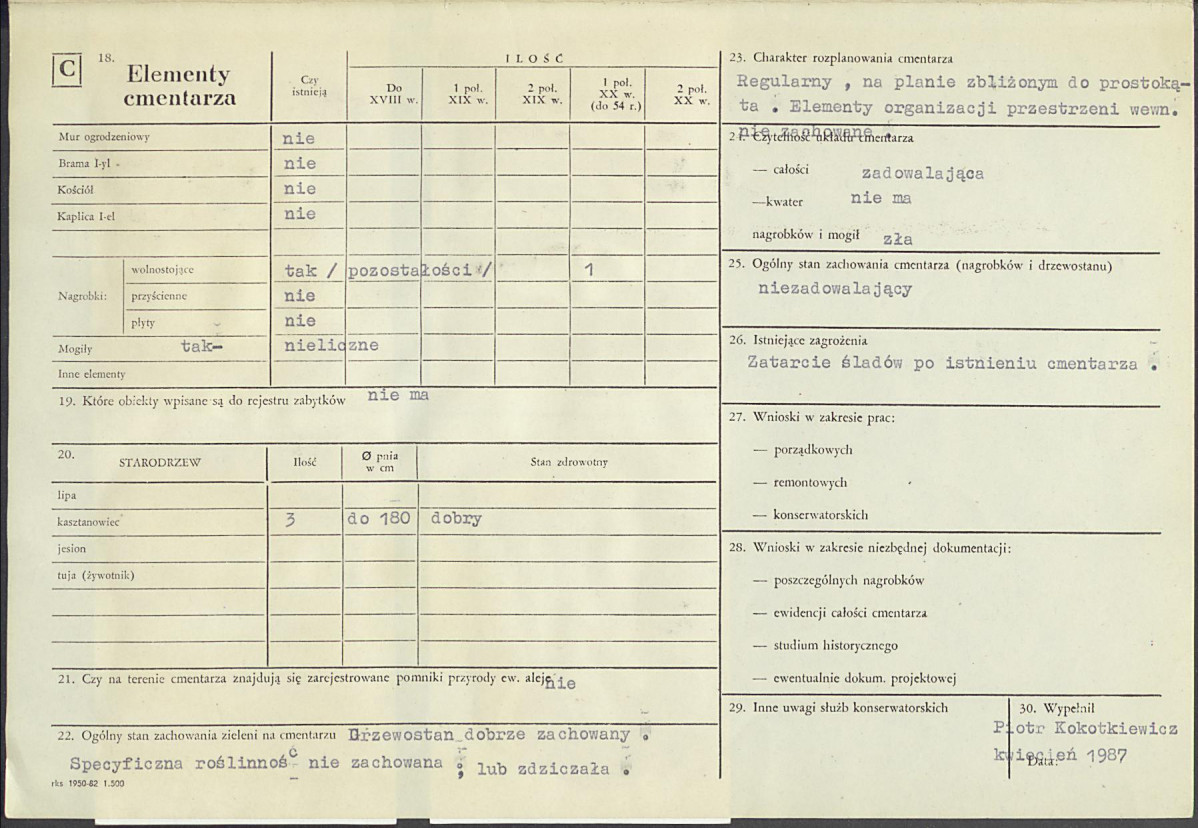 C
18. Elementy cmentarza
Czy istnieją
ILOŚĆ
Do XVIII w.
1 poł. XIX w.
2 poł. XIX w.
1 poł. XX w. (do 54 r.)
2 poł. XX w.
Mur ogrodzeniowy nie
Brama I-yl - nie
Kościół nie
Kaplica I-el nie
Nagrobki:
wolnostojące tak / pozostałości / 1
przyścienne nie
płyty nie
Mogiły tak- nieliczne
Inne elementy
19. Które obiekty wpisane są do rejestru zabytków nie ma
20. STARODRZEW Ilość Ø pnia w cm Stan zdrowotny
lipa
kasztanowiec 3 do 180 dobry
jesion
tuja (żywotnik)
21. Czy na terenie cmentarza znajdują się zarejestrowane pomniki przyrody ew. aleje nie
22. Ogólny stan zachowania zieleni na cmentarzu Drzewostan dobrze zachowany .
Specyficzna roślinność nie zachowana ; lub zdziczała .
rks 1950-82 1.500
23. Charakter rozplanowania cmentarza
Regularny , na planie zbliżonym do prostoką-
ta . Elementy organizacji przestrzeni wewn.
nie zachowane .
24. Czytelność układu cmentarza
— całości zadowalająca
—kwater nie ma
nagrobków i mogił zła
25. Ogólny stan zachowania cmentarza (nagrobków i drzewostanu)
niezadowalający
26. Istniejące zagrożenia
Zatarcie śladów po istnieniu cmentarza .
27. Wnioski w zakresie prac:
— porządkowych
— remontowych
— konserwatorskich
28. Wnioski w zakresie niezbędnej dokumentacji:
— poszczególnych nagrobków
— ewidencji całości cmentarza
— studium historycznego
— ewentualnie dokum. projektowej
29. Inne uwagi służb konserwatorskich
30. Wypełnił
Piotr Kokotkiewicz
kwiecień 1987
Data: